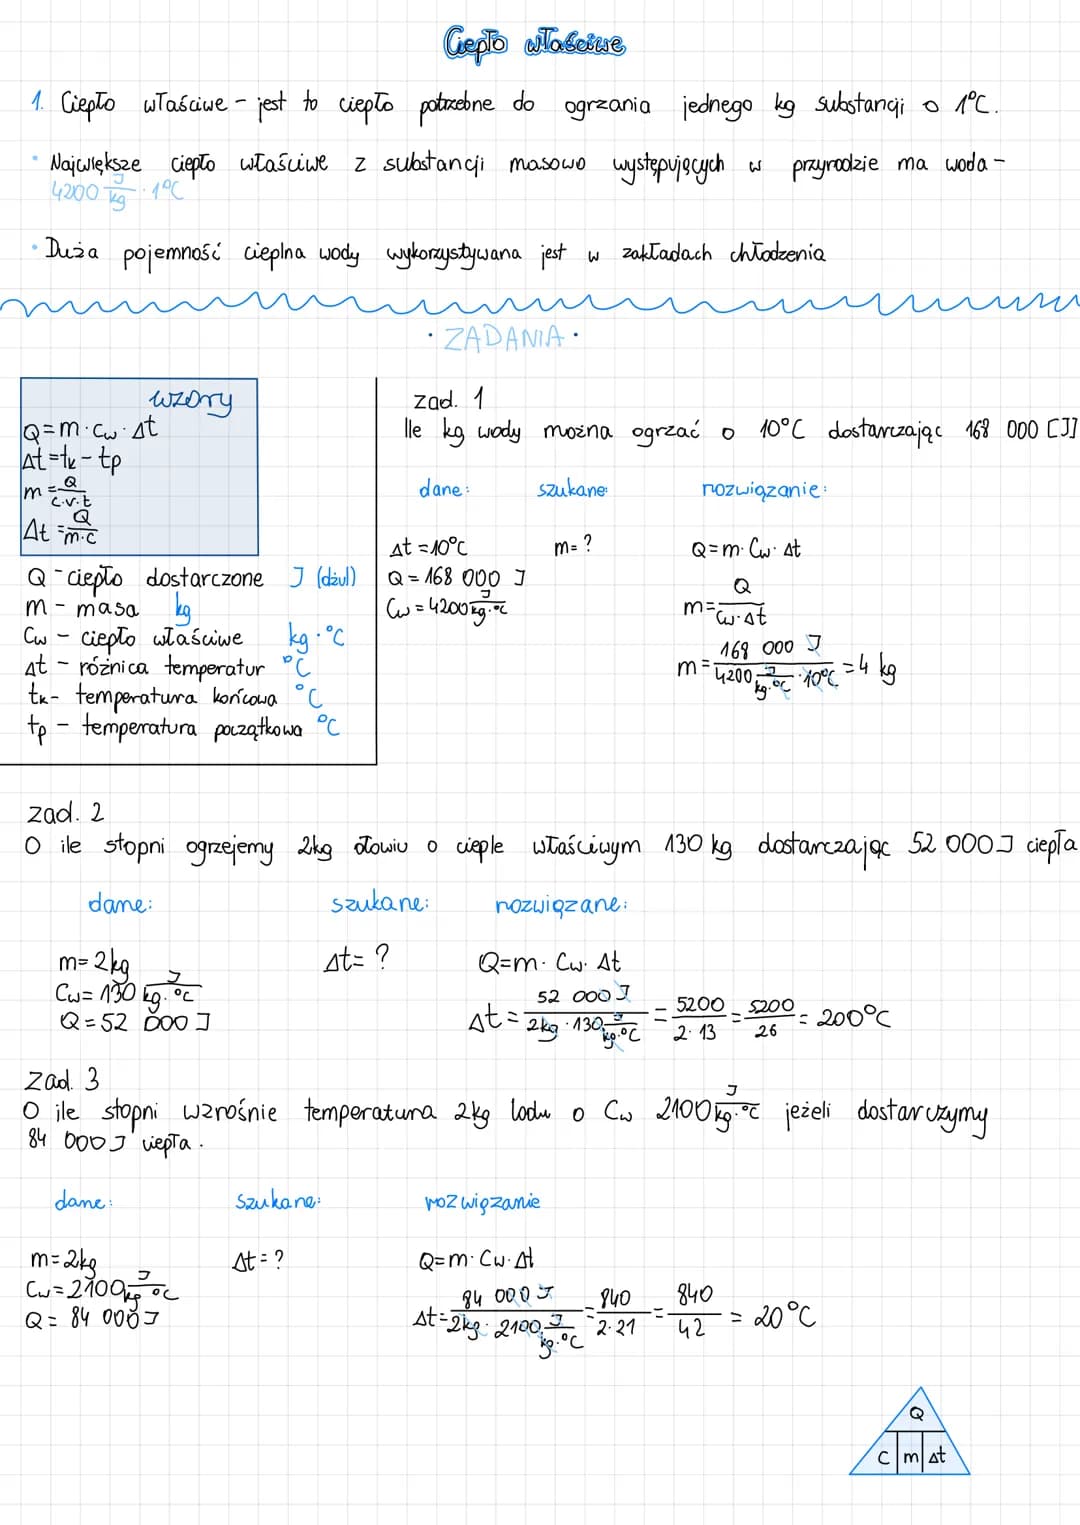 Ciepło właściwe
1. Ciepło właściwe - jest to ciepło potrzebne do ogrzania jednego kg substancji o 1°C.
• Największe ciepło właściwe z substancji masowo występujących w przyrodzie ma woda -
4200 J/kg · 1°C
• Duża pojemność cieplna wody wykorzystywana jest w zakładach chłodzenia
• ZADANIA •
wzory
Q=m·Cw·Δt
Δt=tk-tp
m=Q/c.v.t
Δt=Q/m·c
Q - ciepło dostarczone J (dżul)
m - masa kg
Cw - ciepło właściwe kg·°C
Δt - różnica temperatur °C
tk- temperatura końcowa °C
tp - temperatura początkowa °C
zad. 1
Ile kg wody można ogrzać o 10°C dostarczając 168 000 [J]
dane: szukane: rozwiązanie:
Δt=10°C m=? Q=m·Cw·Δt
Q=168 000 J
Cw=4200 J/kg·°C
m=Q/Cw·Δt
m=168 000 J/4200 J/kg·°C · 10°C =4 kg
zad. 2
O ile stopni ogrzejemy 2kg ołowiu o cieple właściwym 130 kg dostarczając 52 000J ciepła
dane: szukane: rozwiązane:
m=2kg Δt=? Q=m·Cw·Δt
Cw=130 J/kg·°C
Q=52 000 J
Δt=52 000 J/2kg·130 J/kg·°C = 5200/2·13 = 5200/26 = 200°C
Zad. 3
O ile stopni wzrośnie temperatura 2kg lodu o Cw 2100 J/kg·°C jeżeli dostarczymy
84 000J ciepła.
dane: szukane: rozwiązanie
m=2kg Δt=? Q=m·Cw·Δt
Cw=2100 J/kg·°C
Q= 84 000J
Δt=84 000 J/2kg·2100 J/kg·°C = 840/2·21 = 840/42 = 20°C
Q
c m Δt